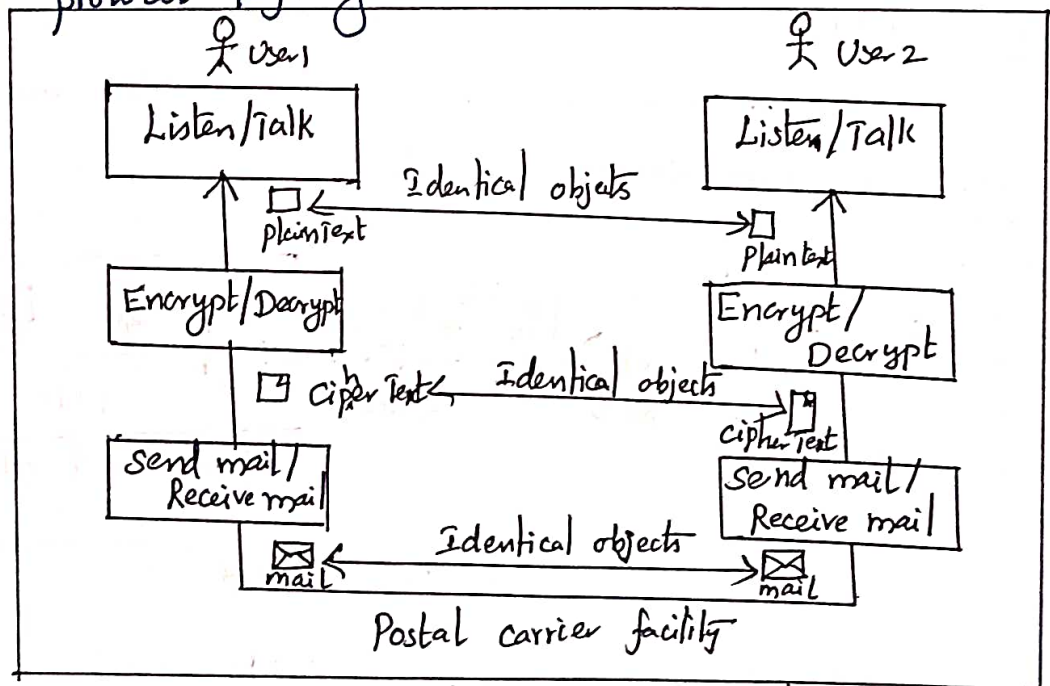 User1
User 2
Listen/Talk
Listen/Talk
Identical objets
plainText
Plaintext
Encrypt/Decrypt
Encrypt/
Decrypt
Identical objects
CipherText
CipherText
Send mail/
Receive mail
Send mail/
Receive mail
Identical objects
mail
mail
Postal carrier facility